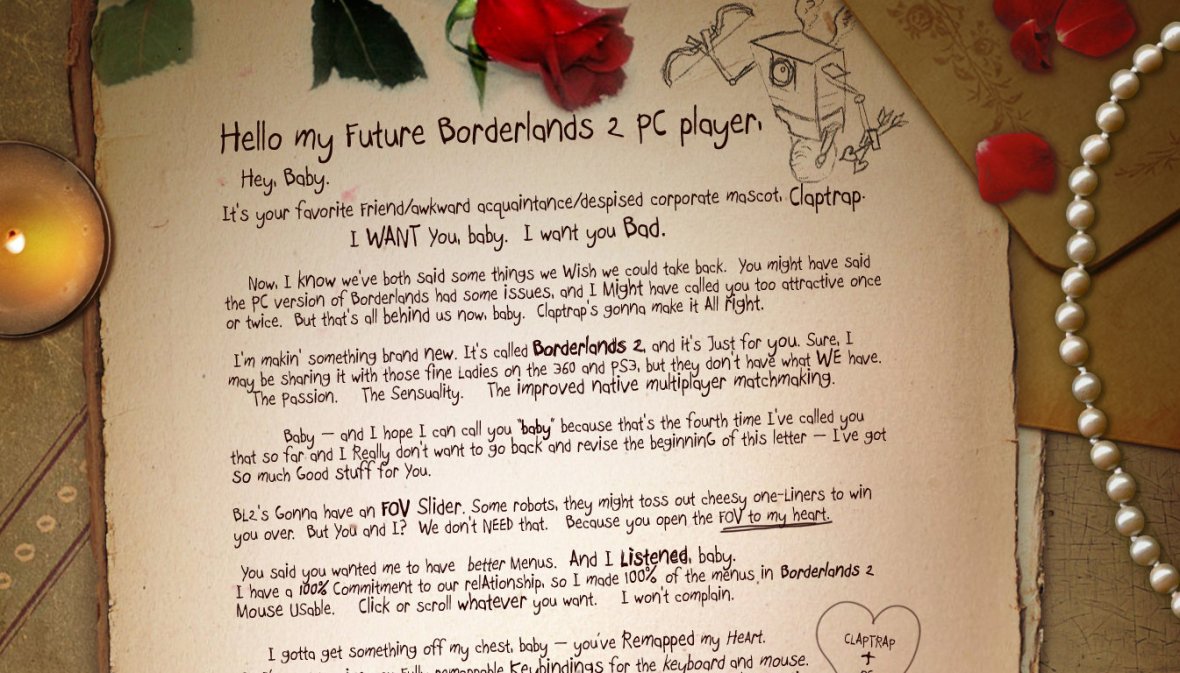 Hello my Future Borderlands 2 PC player,
Hey, Baby.
It's your favorite Friend/awkward acquaintance/despised corporate mascot, Claptrap.
I WANT You, baby. I want you Bad.
Now, I know we've both said some things we Wish we could take back. You might have said
the PC version of Borderlands had some issues, and I Might have called you too attractive once
or twice. But that's all behind us now, baby. Claptrap's gonna make it All right.
I'm makin' something brand new. It's called Borderlands 2, and it's Just for you. Sure, I
may be sharing it with those fine Ladies on the 360 and PS3, but they don't have what WE have.
The Passion. The Sensuality. The improved native multiplayer matchmaking.
Baby — and I hope I can call you "baby" because that's the fourth time I've called you
that so far and I Really don't want to go back and revise the beginninG of this letter — I've got
So much Good stuff for You.
BL2's Gonna have an FOV Slider. Some robots, they might toss out cheesy one-Liners to win
you over. But You and I? We don't NEED that. Because you open the FOV to my heart.
You said you wanted me to have better Menus. And I Listened, baby.
I have a 100% Commitment to our relAtionship, so I made 100% of the menus in Borderlands 2
Mouse USable. Click or scroll whatever you want. I won't complain.
I gotta get something off my chest, baby — you've Remapped my HeArt.
Fully remappable Keybindings for the keyboard and mouse.
CLAPTRAP
+